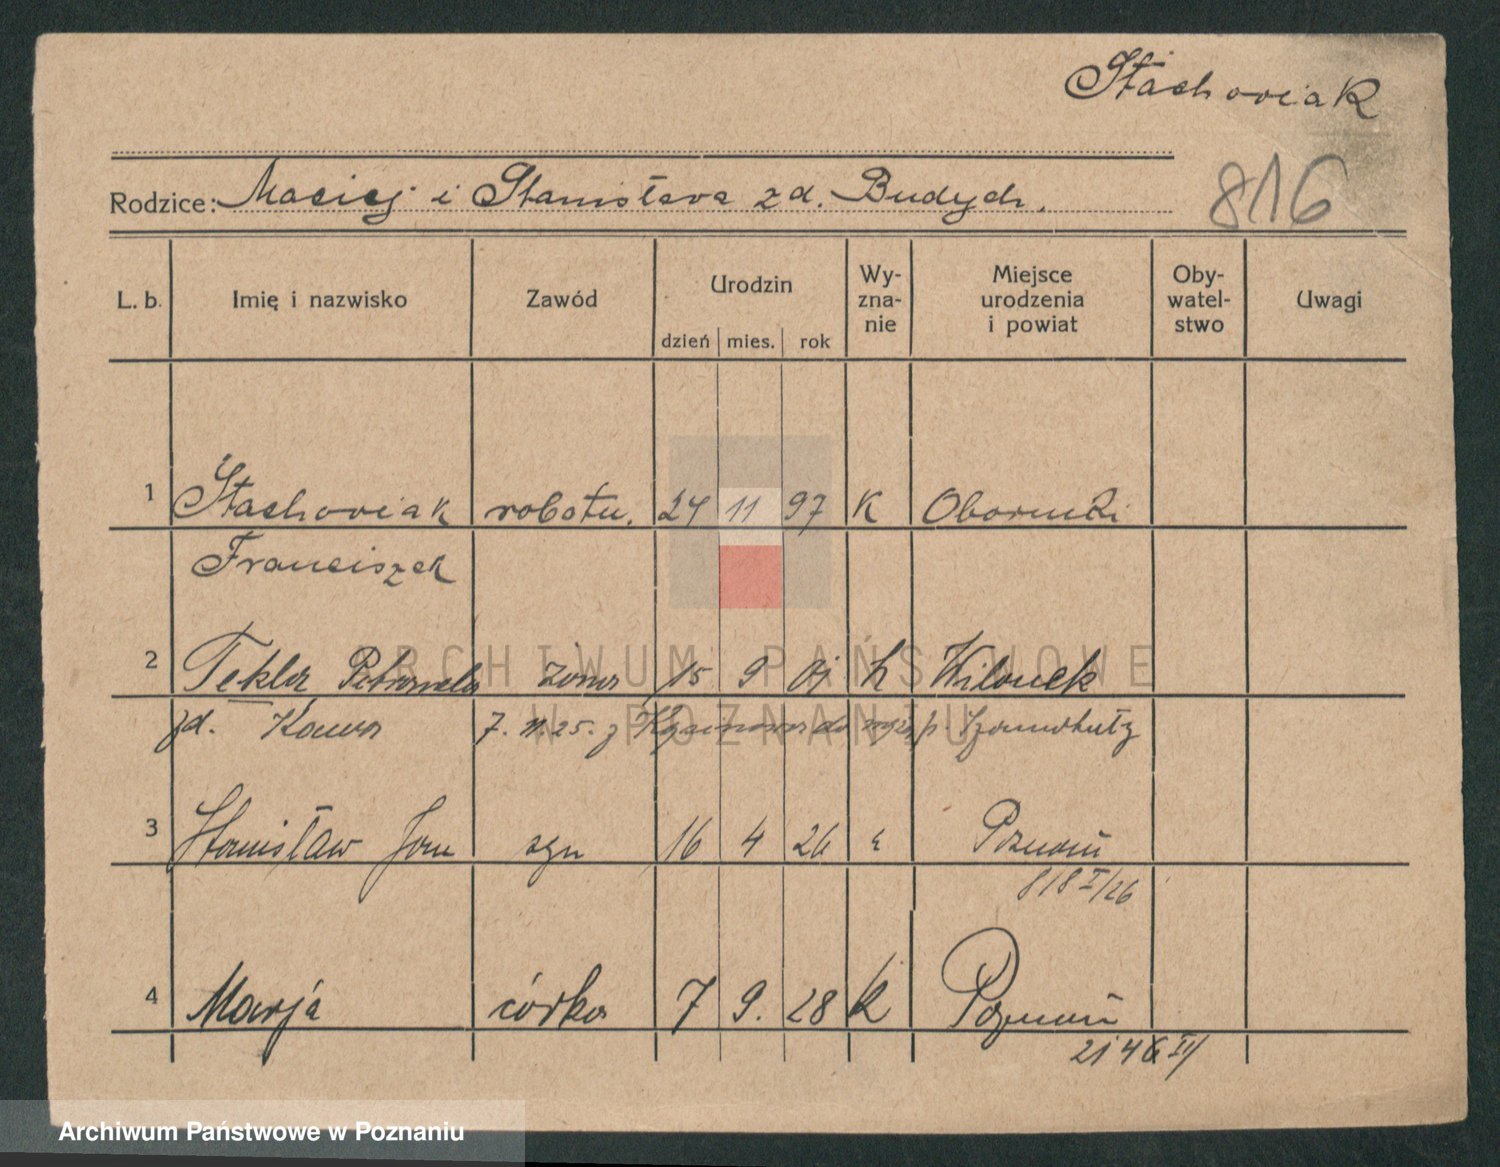 Stachoviak
Rodzice: Maciej i Stanisłava zd. Budych.
816
L. b. Imię i nazwisko Zawód Urodzin dzień mies. rok Wy- zna- nie Miejsce urodzenia i powiat Oby- watel- stwo Uwagi
1 Stachoviak robotn. 24 11 97 K Oborniki
Franciszek
2 Tekla Petronela żona 15 9 01 k Wilonek
zd. Kawa 7. 11. 25. z p. Szamotuły
3 Stanisław Jan syn 16 4 26 Poznań
818 I/26
4 Marja córka 7 9. 28 k Poznań
2146 IV
ARCHIWUM PAŃSTWOWE
W POZNANIU
Archiwum Państwowe w Poznaniu